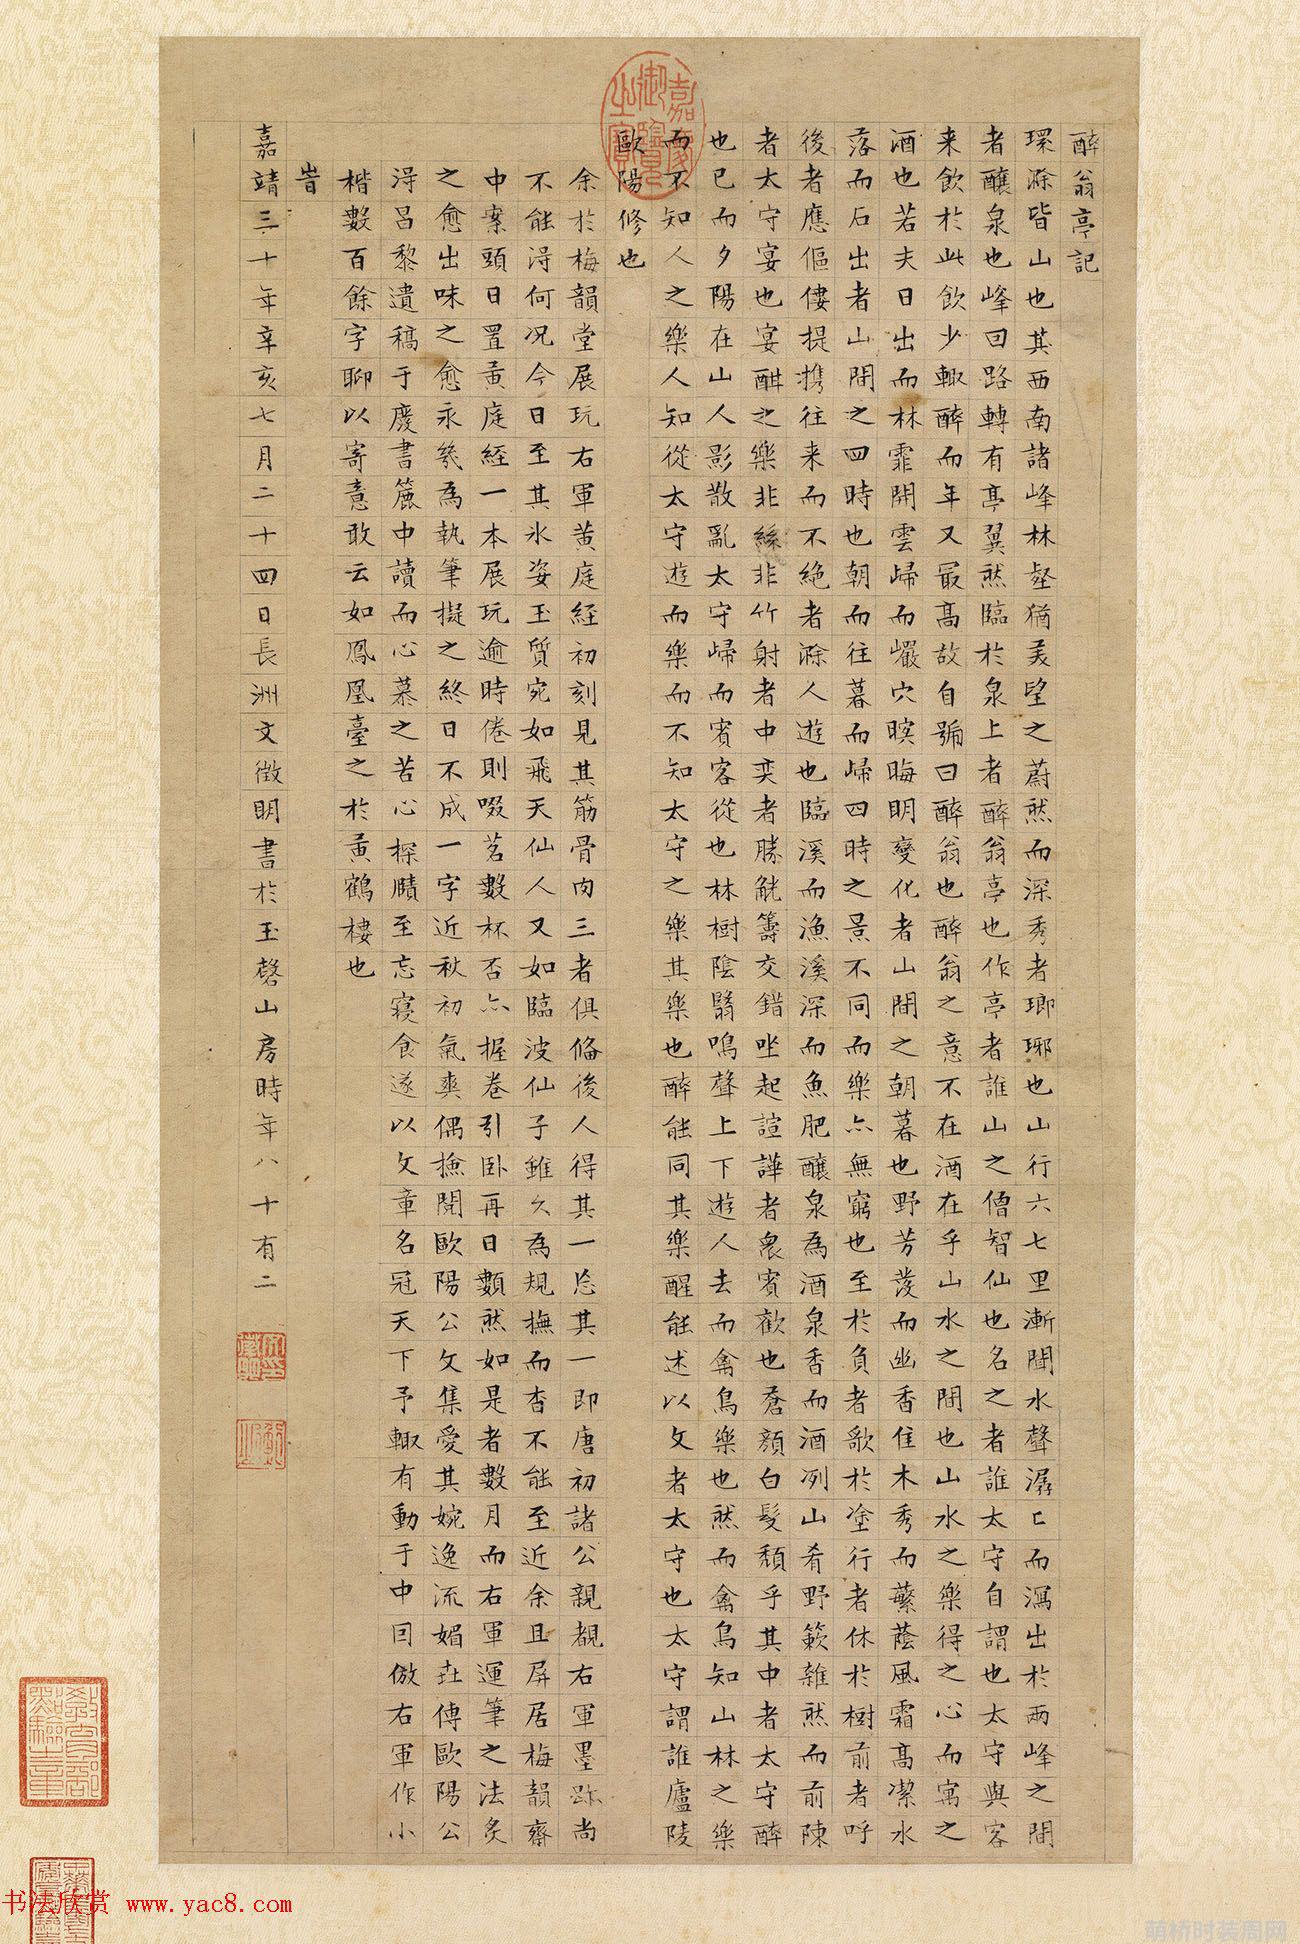 醉翁亭記
環滁皆山也其西南諸峰林壑猶美望之蔚然而深秀者瑯琊也山行六七里漸聞水聲潺〻而瀉出於兩峰之間
者釀泉也峰回路轉有亭翼然臨於泉上者醉翁亭也作亭者誰山之僧智仙也名之者誰太守自謂也太守與客
来飲於此飲少輙醉而年又最高故自號曰醉翁也醉翁之意不在酒在乎山水之間也山水之樂得之心而寓之
酒也若夫日出而林霏開雲歸而巖穴暝晦明變化者山間之朝暮也野芳發而幽香佳木秀而蘩蔭風霜髙潔水
落而石出者山間之四時也朝而往暮而歸四時之景不同而樂亦無窮也至於負者歌於塗行者休於樹前者呼
後者應傴僂提攜往来而不絶者滁人遊也臨溪而漁溪深而魚肥釀泉為酒泉香而酒冽山肴野蔌雜然而前陳
者太守宴也宴酣之樂非絲非竹射者中奕者勝觥籌交錯坐起諠譁者衆賓歡也蒼顏白髮頹乎其中者太守醉
也已而夕陽在山人影散亂太守歸而賓客從也林樹陰翳鳴聲上下遊人去而禽鳥樂也然而禽鳥知山林之樂
而不知人之樂人知從太守遊而樂而不知太守之樂其樂也醉能同其樂醒能述以文者太守也太守謂誰廬陵
歐陽修也
余於梅韻堂展玩右軍黄庭経初刻見其筋骨肉三者俱偹後人得其一忘其一即唐初諸公親覩右軍墨跡尚
不能淂何况今日至其氷姿玉質宛如飛天仙人又如臨波仙子雖久為規撫而杳不能至近余且屏居梅韻齋
中案頭日置黄庭經一本展玩逾時倦則啜茗數杯否亦握卷引卧再日數然如是者數月而右軍運筆之法炙
之愈出味之愈永幾為執筆擬之終日不成一字近秋初氣爽偶撿閱歐陽公文集愛其婉逸流媚丗傳歐陽公
淂昌黎遺稿于廢書簏中讀而心慕之苦心探賾至忘寝食遂以文章名冠天下予輙有動于中囙倣右軍作小
楷數百餘字聊以寄意敢云如鳳凰臺之於黄鶴樓也
旹
嘉靖三十年辛亥七月二十四日長洲文徵明書於玉磬山房時年八十有二
嘉慶御覽之寶
书法欣赏 www.yac8.com
萌桥时装周网